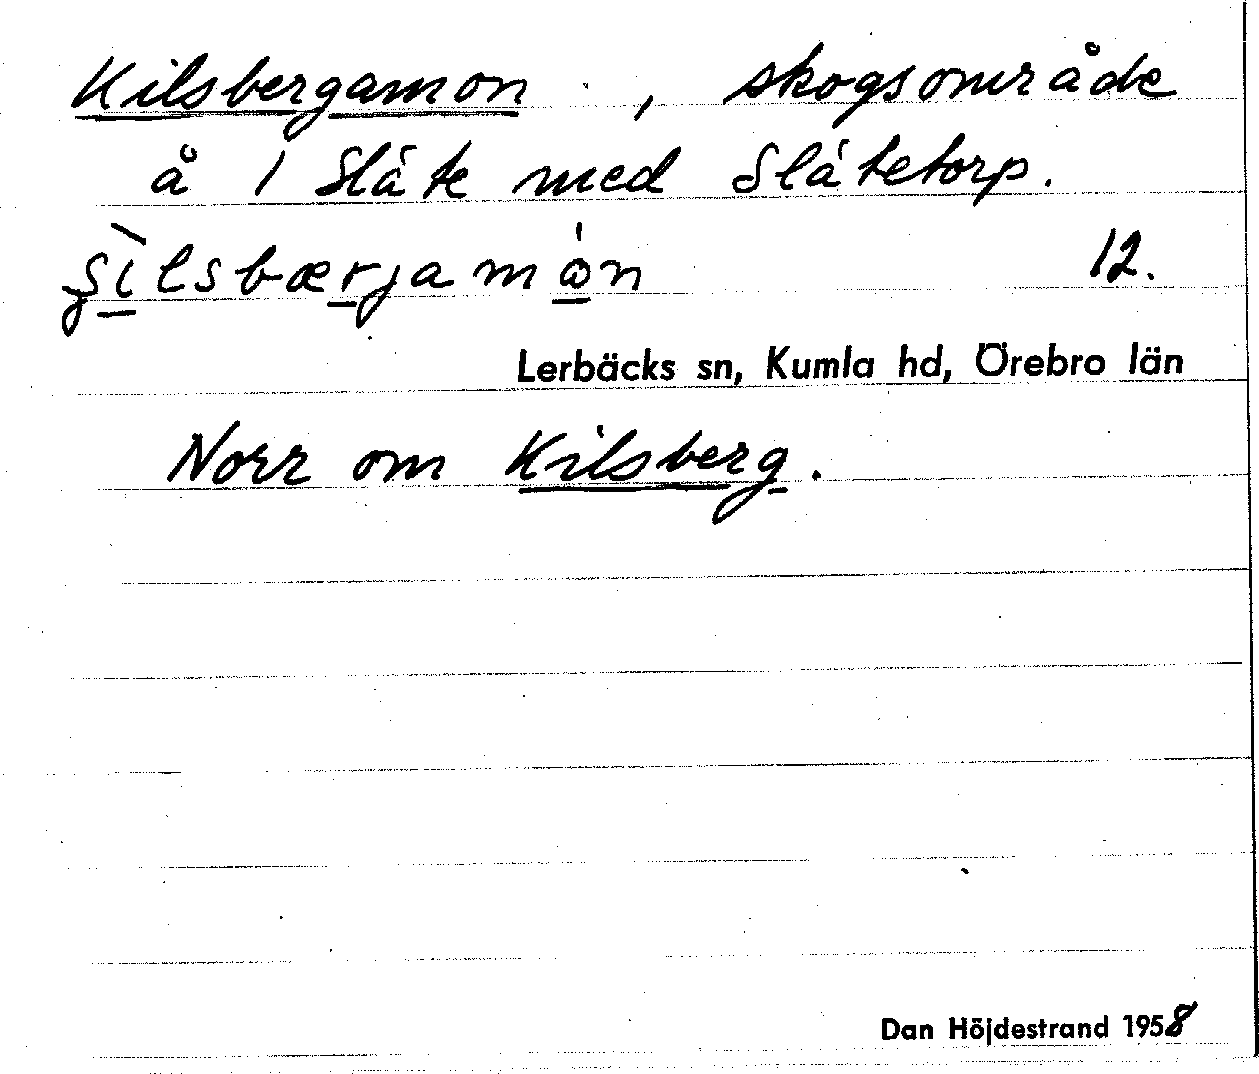 Kilsbergamon, skogsområde
å 1 Slåte med Slåtetorp.
12.
Lerbäcks sn, Kumla hd, Örebro län
Norr om Kilsberg.
Dan Höjdestrand 1958